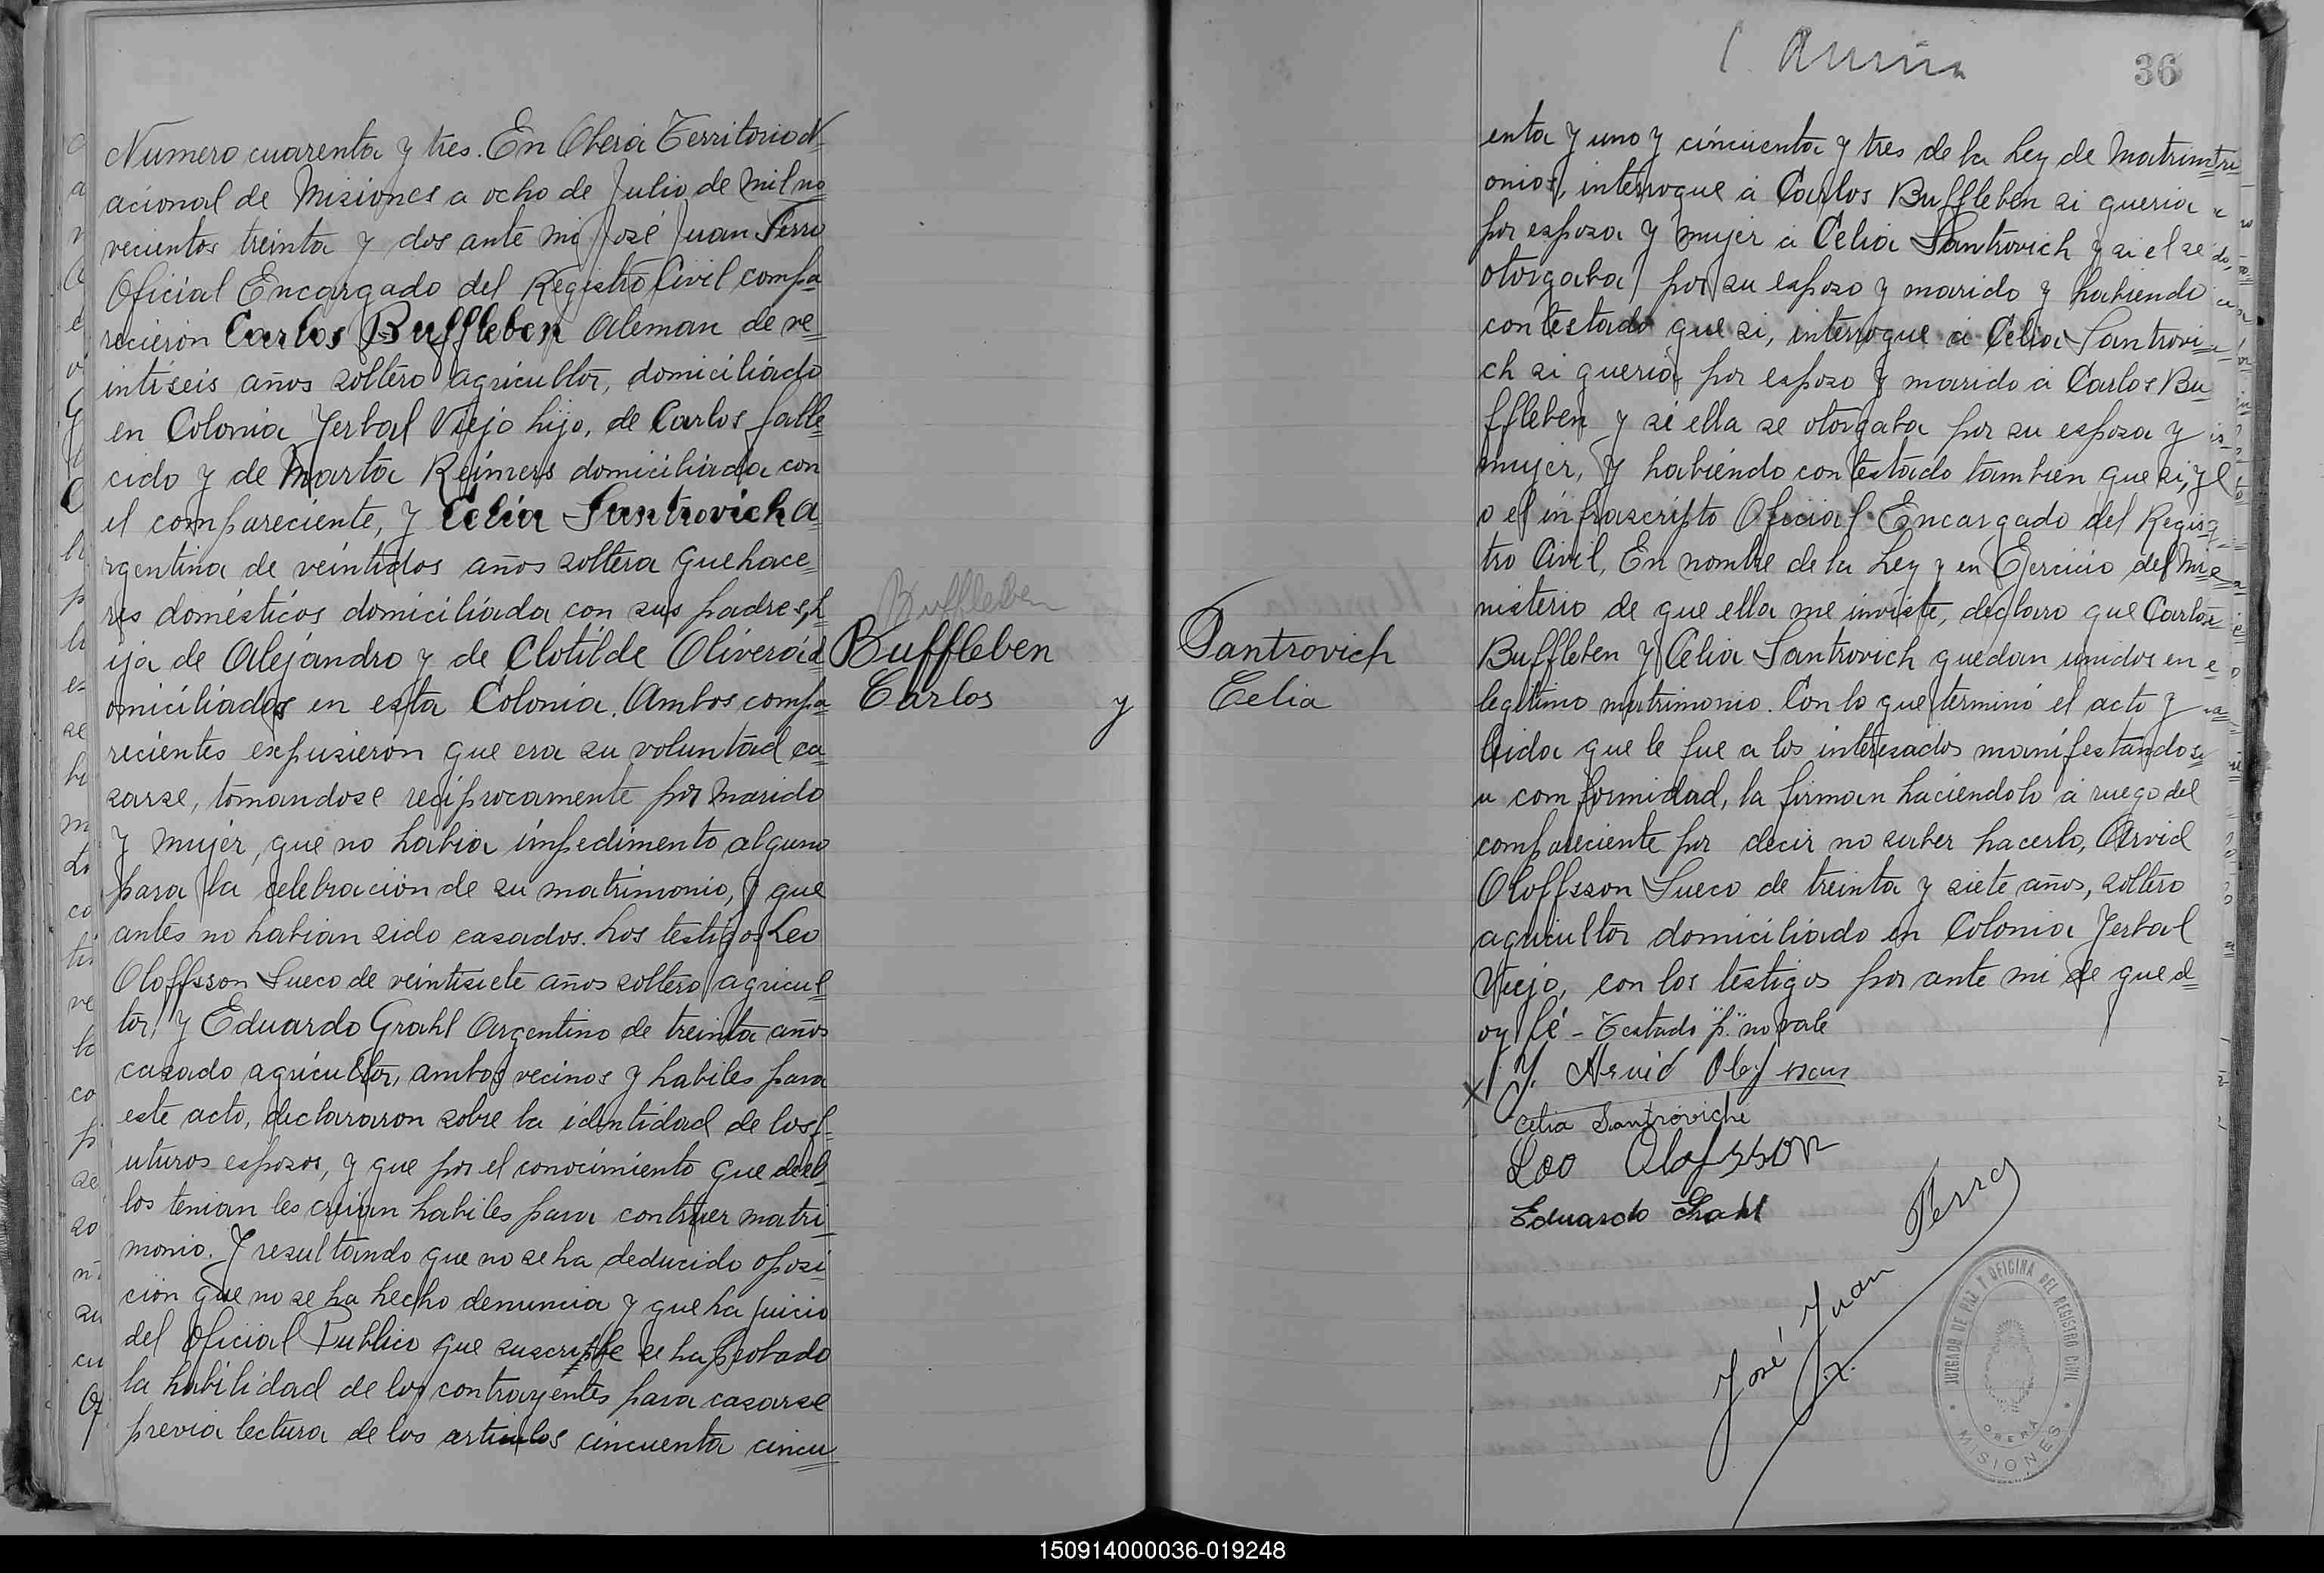 Numero cuarenta y tres. En Oberá Territorio N
acional de Misiones a ocho de Julio de Mil no
vecientos treinta y dos ante mi José Juan Ferro
Oficial Encargado del Registro Civil compa
recieron Carlos Buffleben Aleman de ve
intiseis años soltero agricultor, domiciliado
en Colonia Yerbal Viejo hijo, de Carlos falle
cido y de Marta Reimers domiciliada con
el compareciente, y Celia Santrovich a
rgentina de veintidos años soltera quehace
res domésticos domiciliada con sus padres, h
ija de Alejandro y de Clotilde Olivera d
omiciliados en esta Colonia. Ambos compa
recientes expusieron que era su voluntad ca
sarse, tomandose reciprocamente por marido
y mujer, que no habia impedimento alguno
para la celebracion de su matrimonio, y que
antes no habian sido casados. Los testigos Leo
Oloffsson Sueco de veintisiete años soltero agricul
tor, y Eduardo Grahl Argentino de treinta años
casado agricultor, ambos vecinos y habiles para
este acto, declararon sobre la identidad de los f
uturos esposos, y que por el conocimiento que de el
los tenian les creian habiles para contraer matri
monio. Y resultando que no se ha deducido oposi
cion que no se ha hecho denuncia y que ha juicio
del Oficial Publico que suscribe se ha probado
la habilidad de los contrayentes para casarse
previa lectura de los articulos cincuenta cincu
Buffleben
Buffleben
Carlos y
Santrovich
Celia
36
enta y uno y cincuenta y tres de la Ley de Matrim
onios, interrogue á Carlos Buffleben si queria
por esposa y mujer á Celia Santrovich y si el se
otorgaba por su esposo y marido y habiendo
contestado que si, interrogue á Celia Santrovi
ch si queria por esposo y marido á Carlos Bu
ffleben y si ella se otorgaba por su esposa y
mujer, y habiendo contestado tambien que si, y
o el infrascripto Oficial Encargado del Regis
tro Civil, En nombre de la Ley y en Ejercicio del Mi
nisterio de que ella me inviste, declaro que Carlos
Buffleben y Celia Santrovich quedan unidos en
legitimo matrimonio. Con lo que terminó el acto y
leida que le fue a los interesados manifestando s
u comformidad, la firman haciendolo á ruego del
compareciente por decir no saber hacerlo, Arvid
Oloffsson Sueco de treinta y siete años, soltero
agricultor domiciliado en Colonia Yerbal
Viejo, con los testigos por ante mi de que d
oy fé - Testado "p." no vale
Arvid Olofsson
Celia Santroviche
Leo Olofsson
Eduardo Grahl
José Juan Ferro
JUZGADO DE PAZ Y OFICINA DEL REGISTRO CIVIL
OBERA
MISIONES
150914000036-019248